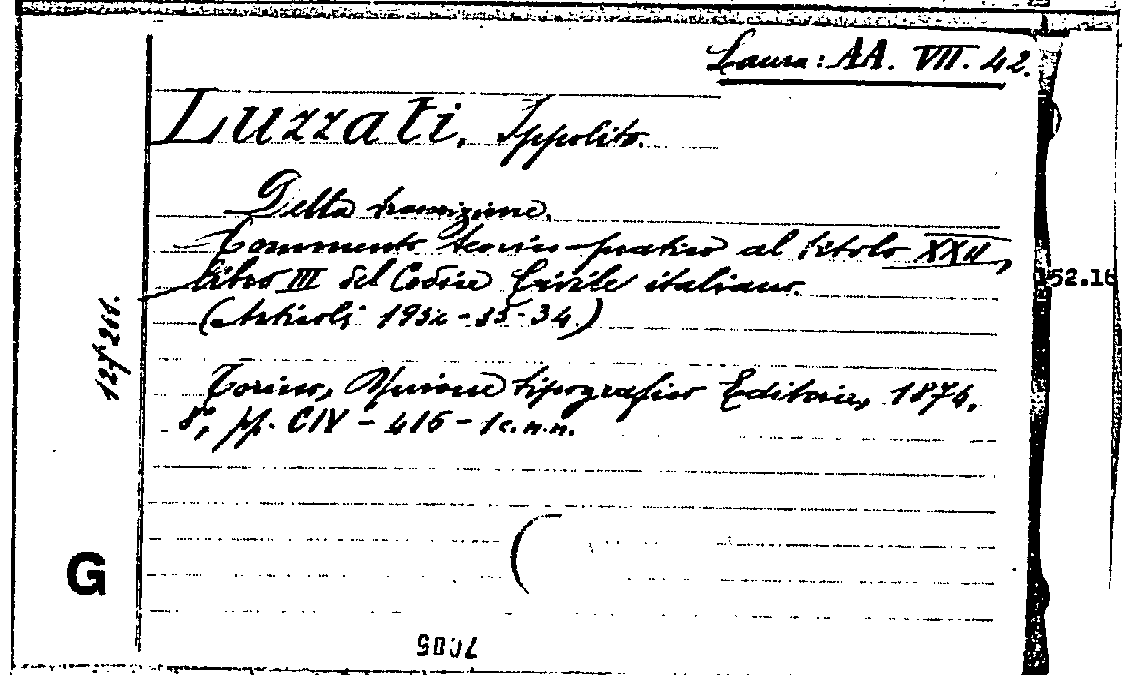 Laura: AA. VII. 42.
Luzzati, Ippolito.
Della trascrizione.
Commento teorico-pratico al titolo XXII,
libro III del Codice Civile italiano.
(Articoli 1932-33-34.)
Torino, Unione tipografico Editrice, 1874.
8°, pp. CIV - 416 - 1 c.n.n.
127261.
52.16
G
7005